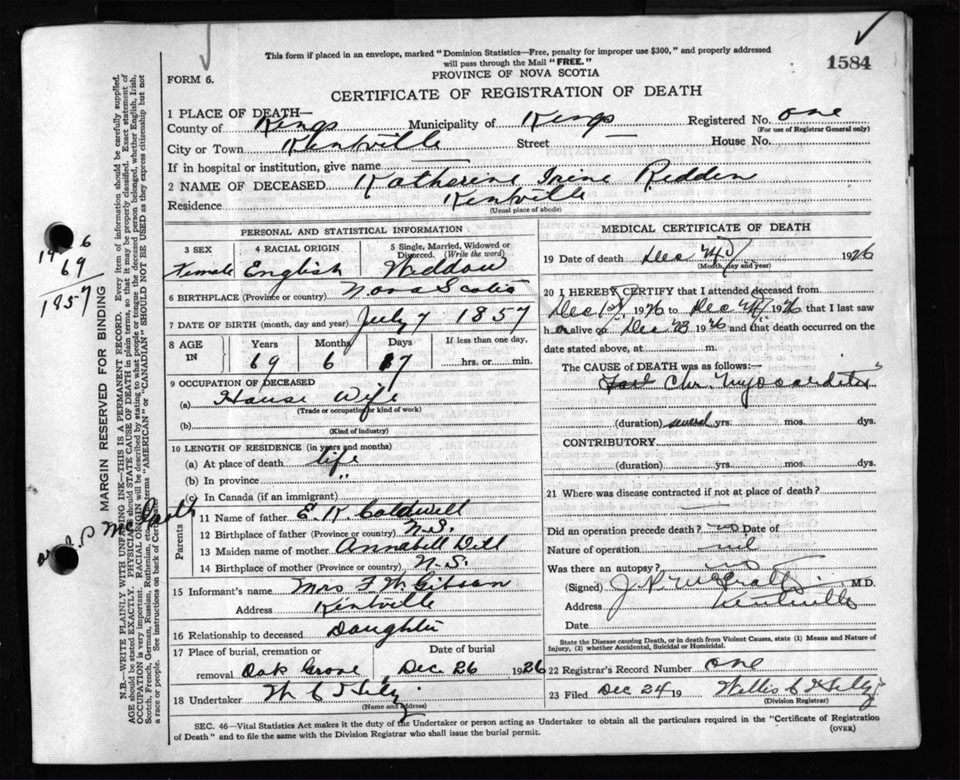 This form if placed in an envelope, marked "Dominion Statistics—Free, penalty for improper use $300," and properly addressed
will pass through the Mail "FREE."
1584
FORM 6.
PROVINCE OF NOVA SCOTIA
CERTIFICATE OF REGISTRATION OF DEATH
1 PLACE OF DEATH—
County of Kings Municipality of Kings Registered No. one
(For use of Registrar General only)
City or Town Kentville Street House No.
If in hospital or institution, give name
2 NAME OF DECEASED Katherine Irene Redden
Residence Kentville
(Usual place of abode)
PERSONAL AND STATISTICAL INFORMATION
3 SEX 4 RACIAL ORIGIN 5 Single, Married, Widowed or
Divorced. (Write the word)
Female English Widdow
6 BIRTHPLACE (Province or country) Nova Scotia
7 DATE OF BIRTH (month, day and year) July 7 1857
8 AGE IN Years Months Days If less than one day,
69 6 17 hrs. or min.
9 OCCUPATION OF DECEASED
(a) House Wife
(Trade or occupation or kind of work)
(b)
(Kind of industry)
10 LENGTH OF RESIDENCE (in years and months)
(a) At place of death life
(b) In province "
(c) In Canada (if an immigrant)
Parents
11 Name of father E. K. Coldwell
12 Birthplace of father (Province or country) N.S.
13 Maiden name of mother Annabell Dill
14 Birthplace of mother (Province or country) N-S.
15 Informant's name Mrs F. W. Gibson
Address Kentville
16 Relationship to deceased Daughter
17 Place of burial, cremation or Date of burial
removal Oak Grove Dec 26 1926
18 Undertaker
(Name and address)
MEDICAL CERTIFICATE OF DEATH
19 Date of death Dec 1926
(Month, day and year)
20 I HEREBY CERTIFY that I attended deceased from
Dec 1926 to Dec 1926 that I last saw
h er alive on Dec 23 1926 and that death occurred on the
date stated above, at m.
The CAUSE OF DEATH was as follows:—
Chr. Myocarditis
(duration) several yrs. mos. dys.
CONTRIBUTORY
(duration) yrs. mos. dys.
21 Where was disease contracted if not at place of death?
Did an operation precede death? no Date of
Nature of operation nil
Was there an autopsy? no
(Signed) M.D.
Address Kentville
Date
State the Disease causing Death, or in death from Violent Causes, state (1) Means and Nature of
Injury, (2) whether Accidental, Suicidal or Homicidal.
22 Registrar's Record Number one
23 Filed Dec 24 19 Willis
(Division Registrar)
SEC. 46—Vital Statistics Act makes it the duty of the Undertaker or person acting as Undertaker to obtain all the particulars required in the "Certificate of Registration
of Death" and to file the same with the Division Registrar who shall issue the burial permit. (OVER)
MARGIN RESERVED FOR BINDING
N.B.—WRITE PLAINLY WITH UNFADING INK—THIS IS A PERMANENT RECORD. Every item of information should be carefully supplied.
AGE should be stated EXACTLY. PHYSICIANS should STATE CAUSE OF DEATH in plain terms, so that it may be properly classified. Exact statement of
OCCUPATION is very important. RACIAL ORIGIN will be described by stating to what people or tongue the deceased person belonged, whether English, Irish,
Scotch, French, German, Russian, Ruthenian, etc. The terms "AMERICAN" or "CANADIAN" SHOULD NOT BE USED as they express citizenship but not
a race or people. See instructions on back of Certificate.
69
1857